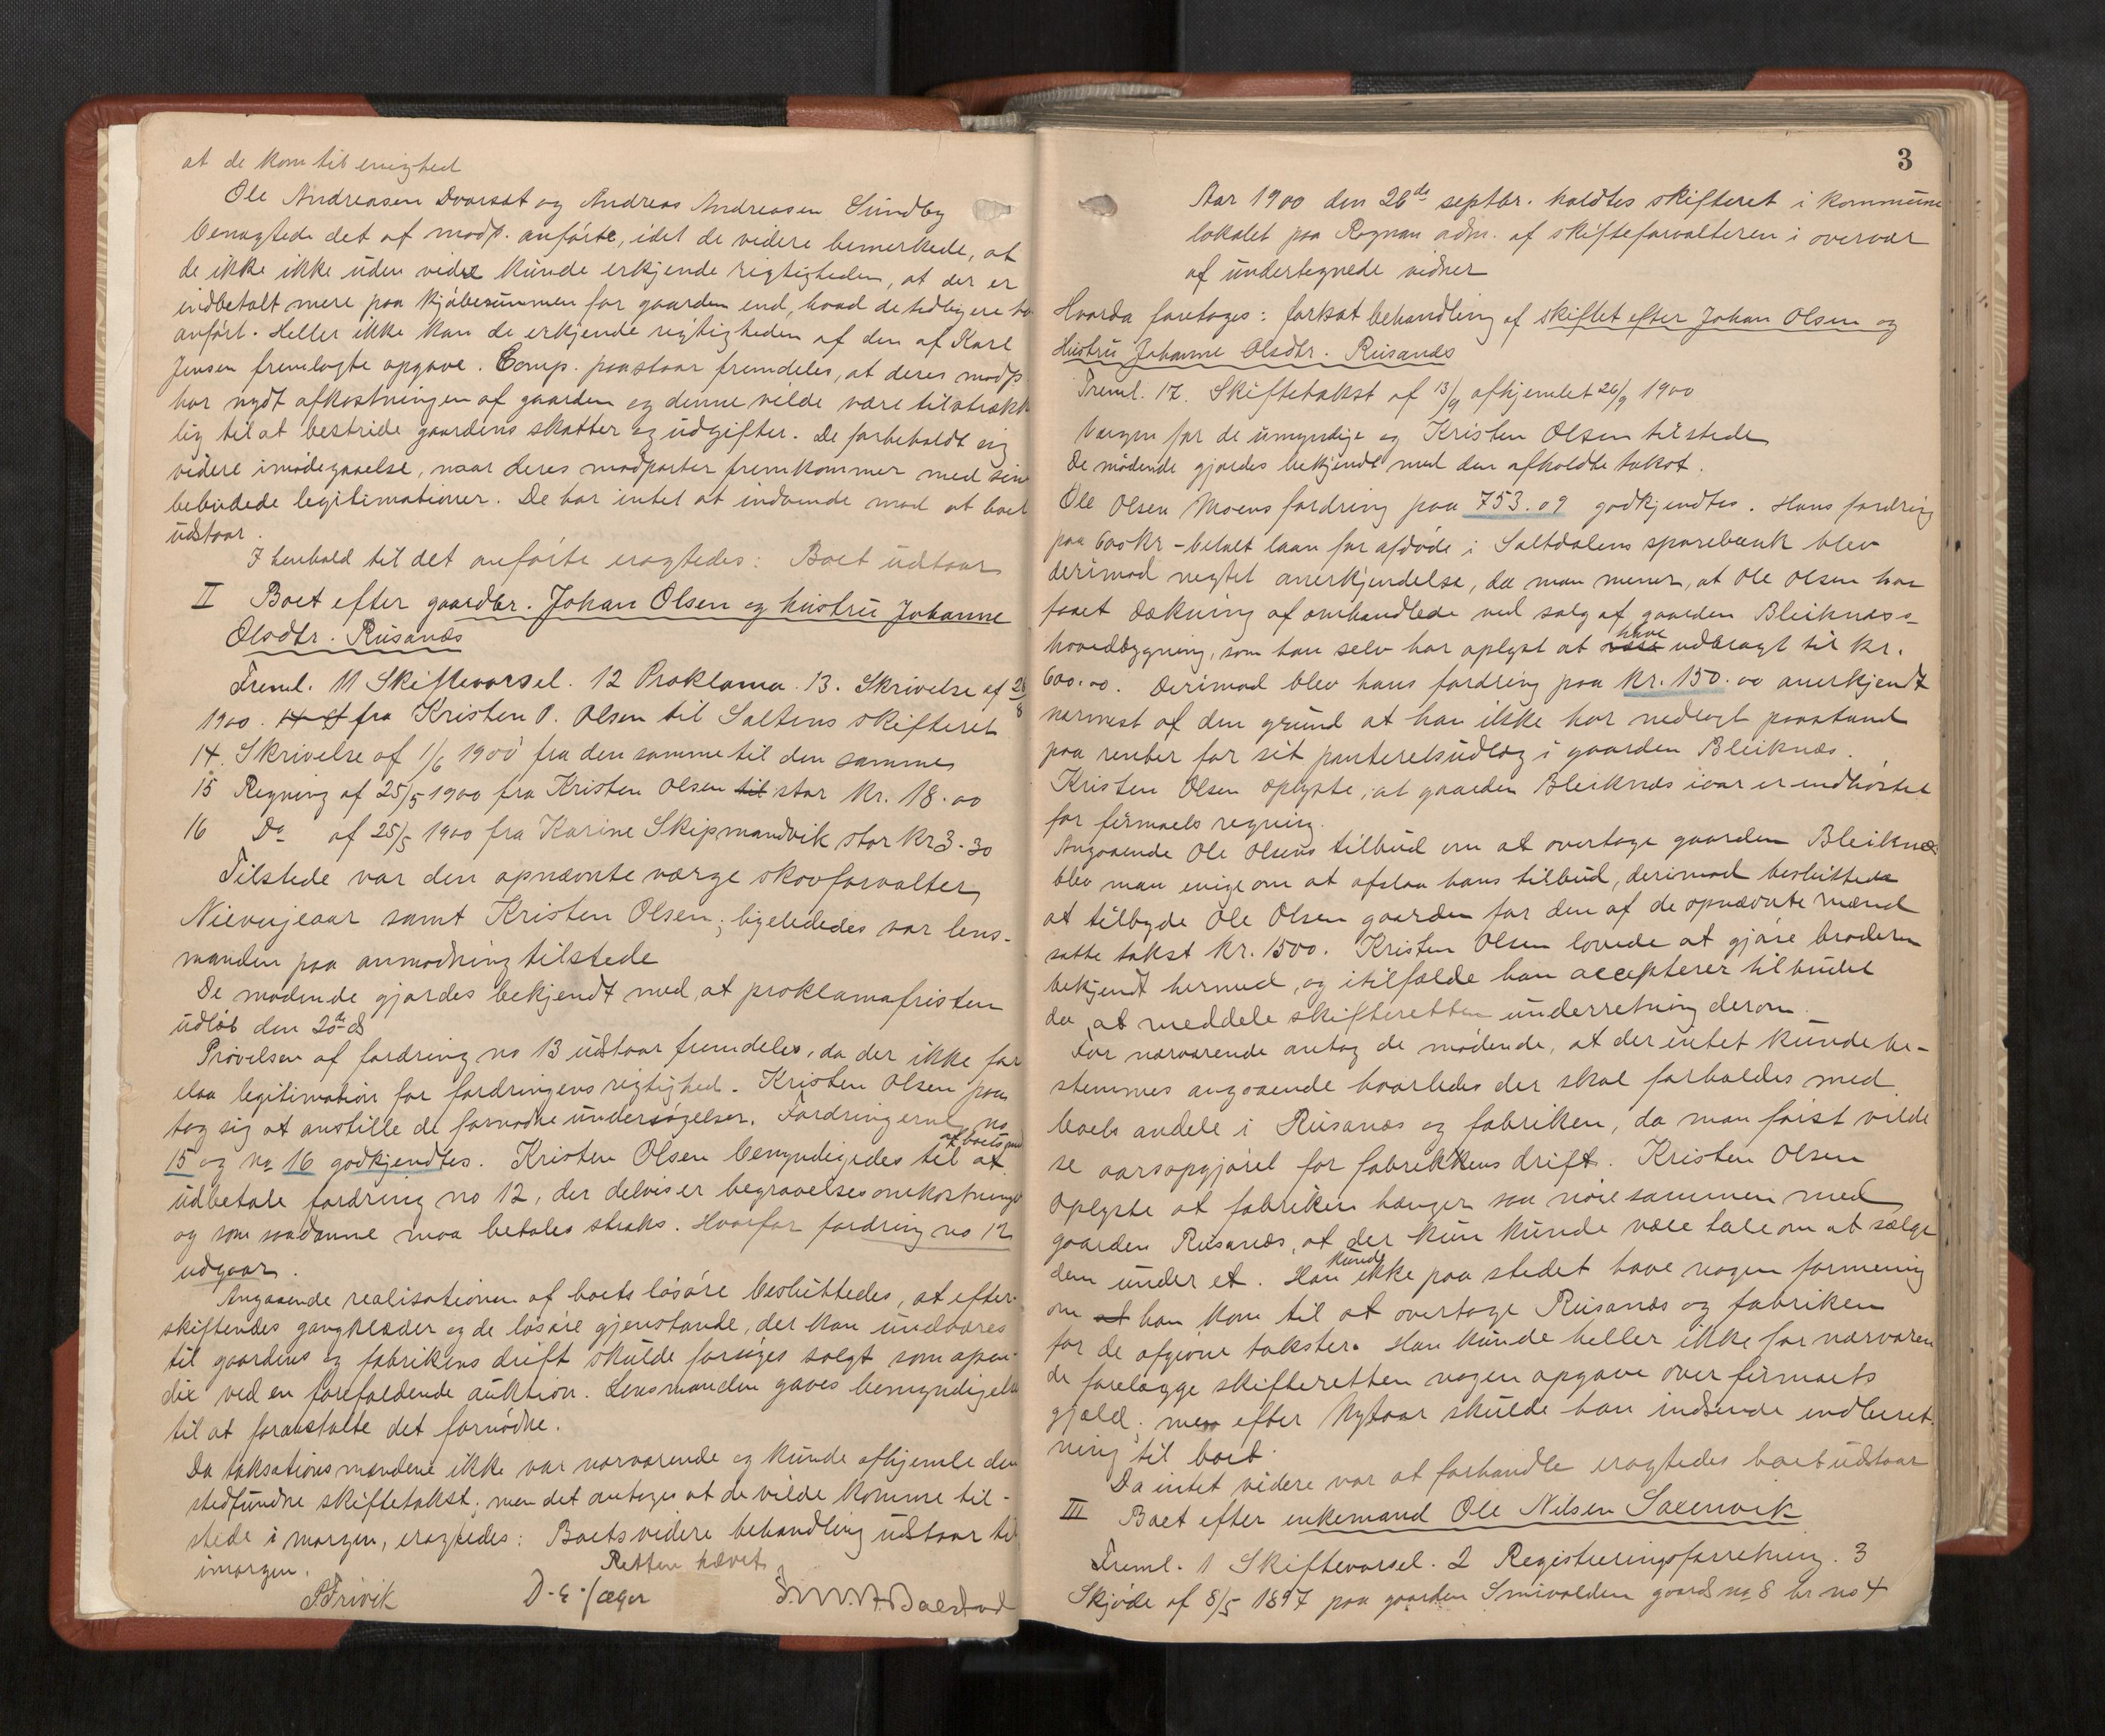 at de kom til enighed
Ole Andreasen Dverset og Andreas Andreasen Sundby
benegtede det af modp. anførte, idet de videre bemerkede, at
de ikke ikke uden videre kunde erkjende rigtigheden, at der er
indbetalt mere paa kjøbesummen for gaarden end, hvad de tidligere ha
anført. Heller ikke kan de erkjende rigtigheden af den af Karl
Jensen fremlagte opgave. Comp. paastaar fremdeles, at deres modp
har nydt afkastningen af gaarden og denne vilde være tilstrække
lig til at bestride gaardens skatter og udgifter. De forbeholdt sig
videre imødegaaelse, naar deres modparter fremkommer med sine
bebudede legitimationer. De har intet at indvende mod at boet
udstaar.
I henhold til det anførte eragtedes: Boet udstaar
II Boet efter gaardbr. Johan Olsen og hustru Johanne
Olsdtr. Rusanæs
Freml. 11 Skiftevarsel. 12 Proklama. 13. Skrivelse af 28/8
1900. fra Kristen O. Olsen til Saltens skifteret
14. Skrivelse af 1/6 1900 fra den samme til den samme
15 Regning af 25/5 1900 fra Kristen Olsen til stor kr. 18.00
16 Do af 25/5 1900 fra Karine Skipmandvik stor kr 3.30
Tilstede var den opnævnte værge skovforvalter
Nievujeaar samt Kristen Olsen; ligeledes var lens-
manden paa anmodning tilstede
De mødende gjordes bekjendt med, at proklamafristen
udløb den 20de ds
Prøvelsen af fordring no 13 udstaar fremdeles, da der ikke for
elaa legitimation for fordringens rigtighed. Kristen Olsen paa
tog sig at anstille de fornødne undersøgelser. Fordringerne no
15 og no 16 godkjendtes. Kristen Olsen bemyndigedes til at af boets mid
udbetale fordring no 12, der delvis er begravelsesomkostninger
og som saadanne maa betales straks. Hvorfor fordring no 12
udgaar.
Angaaende realisationen af boets løsøre besluttedes, at efter-
skiftendes gangklæder og de løsøre gjenstande, der kan undværes
til gaardens og fabrikens drift skulde forsøges solgt som apen-
dix ved en forefaldende auktion. Lensmanden gaves bemyndigelse
til at foranstalte det fornødne.
Da taksationsmændene ikke var nærværende og kunde afhjemle den
stedfundne skiftetakst; men det antages at de vilde komme til-
stede i morgen, eragtedes: Boets videre behandling udstaar til
imorgen.
Retten hævet
D. E. Jæger
Aar 1900 den 26de septbr. holdtes skifteret i kommune
lokalet paa Rognan adm. af skifteforvalteren i overvær
af undertegnede vidner
Hvorda foretoges: fortsat behandling af skiftet efter Johan Olsen og
Hustru Johanne Olsdtr. Rusanæs
Freml. 17. Skiftetakst af 13/9 afhjemlet 26/9 1900
Værgen for de umyndige og Kristen Olsen tilstede
De mødende gjordes bekjendt med den afholdte takst.
Ole Olsen Moens fordring paa 753.09 godkjendtes. Hans fordring
paa 600 kr - betalt laan for afdøde i Saltdalens sparebank blev
derimod negtet anerkjendelse, da man mener, at Ole Olsen har
faaet dækning af omhandlede ved salg af gaarden Bleiknæs-
hovedbygning, som han selv har oplyst at have udbragt til kr.
600.00. Derimod blev hans fordring paa kr. 150.00 anerkjendt
nærmest af den grund at han ikke har nedlagt paastand
paa renter for sit panteretsudlæg i gaarden Bleiknæs.
Kristen Olsen oplyste, at gaarden Bleiknæs iaar er indhøstet
for firmaets regning.
Angaaende Ole Olsens tilbud om at overtage gaarden Bleiknæs
blev man enige om at afslaa hans tilbud, derimod besluttedes
at tilbyde Ole Olsen gaarden for den af de opnævnte mænd
satte takst kr. 1500. Kristen Olsen lovede at gjøre broderen
bekjendt hermed, og i tilfælde han accepterer tilbudet
da at meddele skifteretten underretning derom.
For nærværende antog de mødende, at der intet kunde be-
stemmes angaaende hvorledes der skal forholdes med
boets andele i Rusanæs og fabriken, da man først vilde
se aarsopgjøret for fabrikkens drift. Kristen Olsen
oplyste at fabriken hænger saa nøie sammen med
gaarden Rusanæs, at der kun kunde være tale om at sælge
dem under et. Han kunde ikke paa stedet have nogen formening
om at han kom til at overtage Rusanæs og fabriken
for de afgivne takster. Han kunde heller ikke for nærværen
de forelægge skifteretten nogen opgave over firmaets
gjæld; men efter Nytaar skulde han indsende indberet-
ning til boet.
Da intet videre var at forhandle eragtedes boet udstaar
III Boet efter enkemand Ole Nilsen Saxenvik
Freml. 1 Skiftevarsel. 2 Registreringsforretning. 3
Skjøde af 8/5 1897 paa gaarden Smivolden gaards no 8 br no 4
3